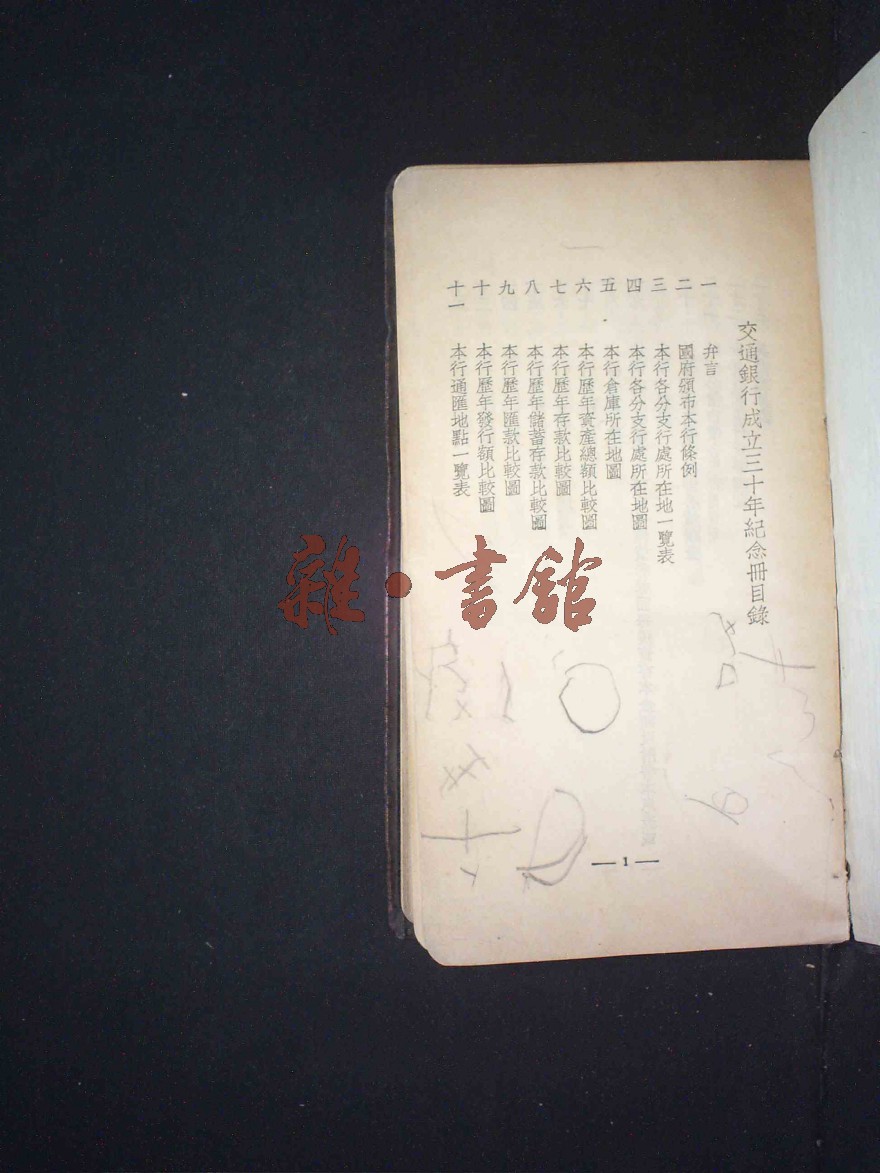 交通銀行成立三十年紀念冊目錄
一 弁言
二 國府頒布本行條例
三 本行各分支行處所在地一覽表
四 本行各分支行處所在地圖
五 本行倉庫所在地圖
六 本行歷年資產總額比較圖
七 本行歷年存款比較圖
八 本行歷年儲蓄存款比較圖
九 本行歷年匯款比較圖
十 本行歷年發行額比較圖
十一 本行通匯地點一覽表
— 1 —
雜·書館